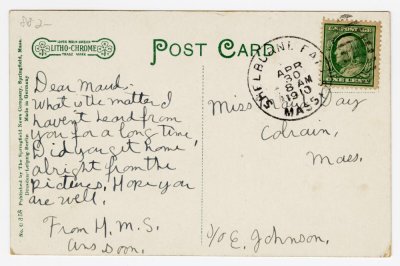 882-
LOVE ROSE BRAND
LITHO-CHROME
TRADE MARK
POST CARD
No. C 358 Published by The Springfield News Company, Springfield, Mass.
Dresden Leipzig Berlin Made in Germany
SHELBURNE FALLS
APR
30
8 AM
1910
MASS.
ONE CENT
Dear Maud:
what is the matter I
havent heard from
you for a long time.
Did you get home
alright from the
pictures. Hope you
are well.
From H. M. S.
ans soon.
Miss Day
Colrain,
Mass.
c/o E. Johnson.